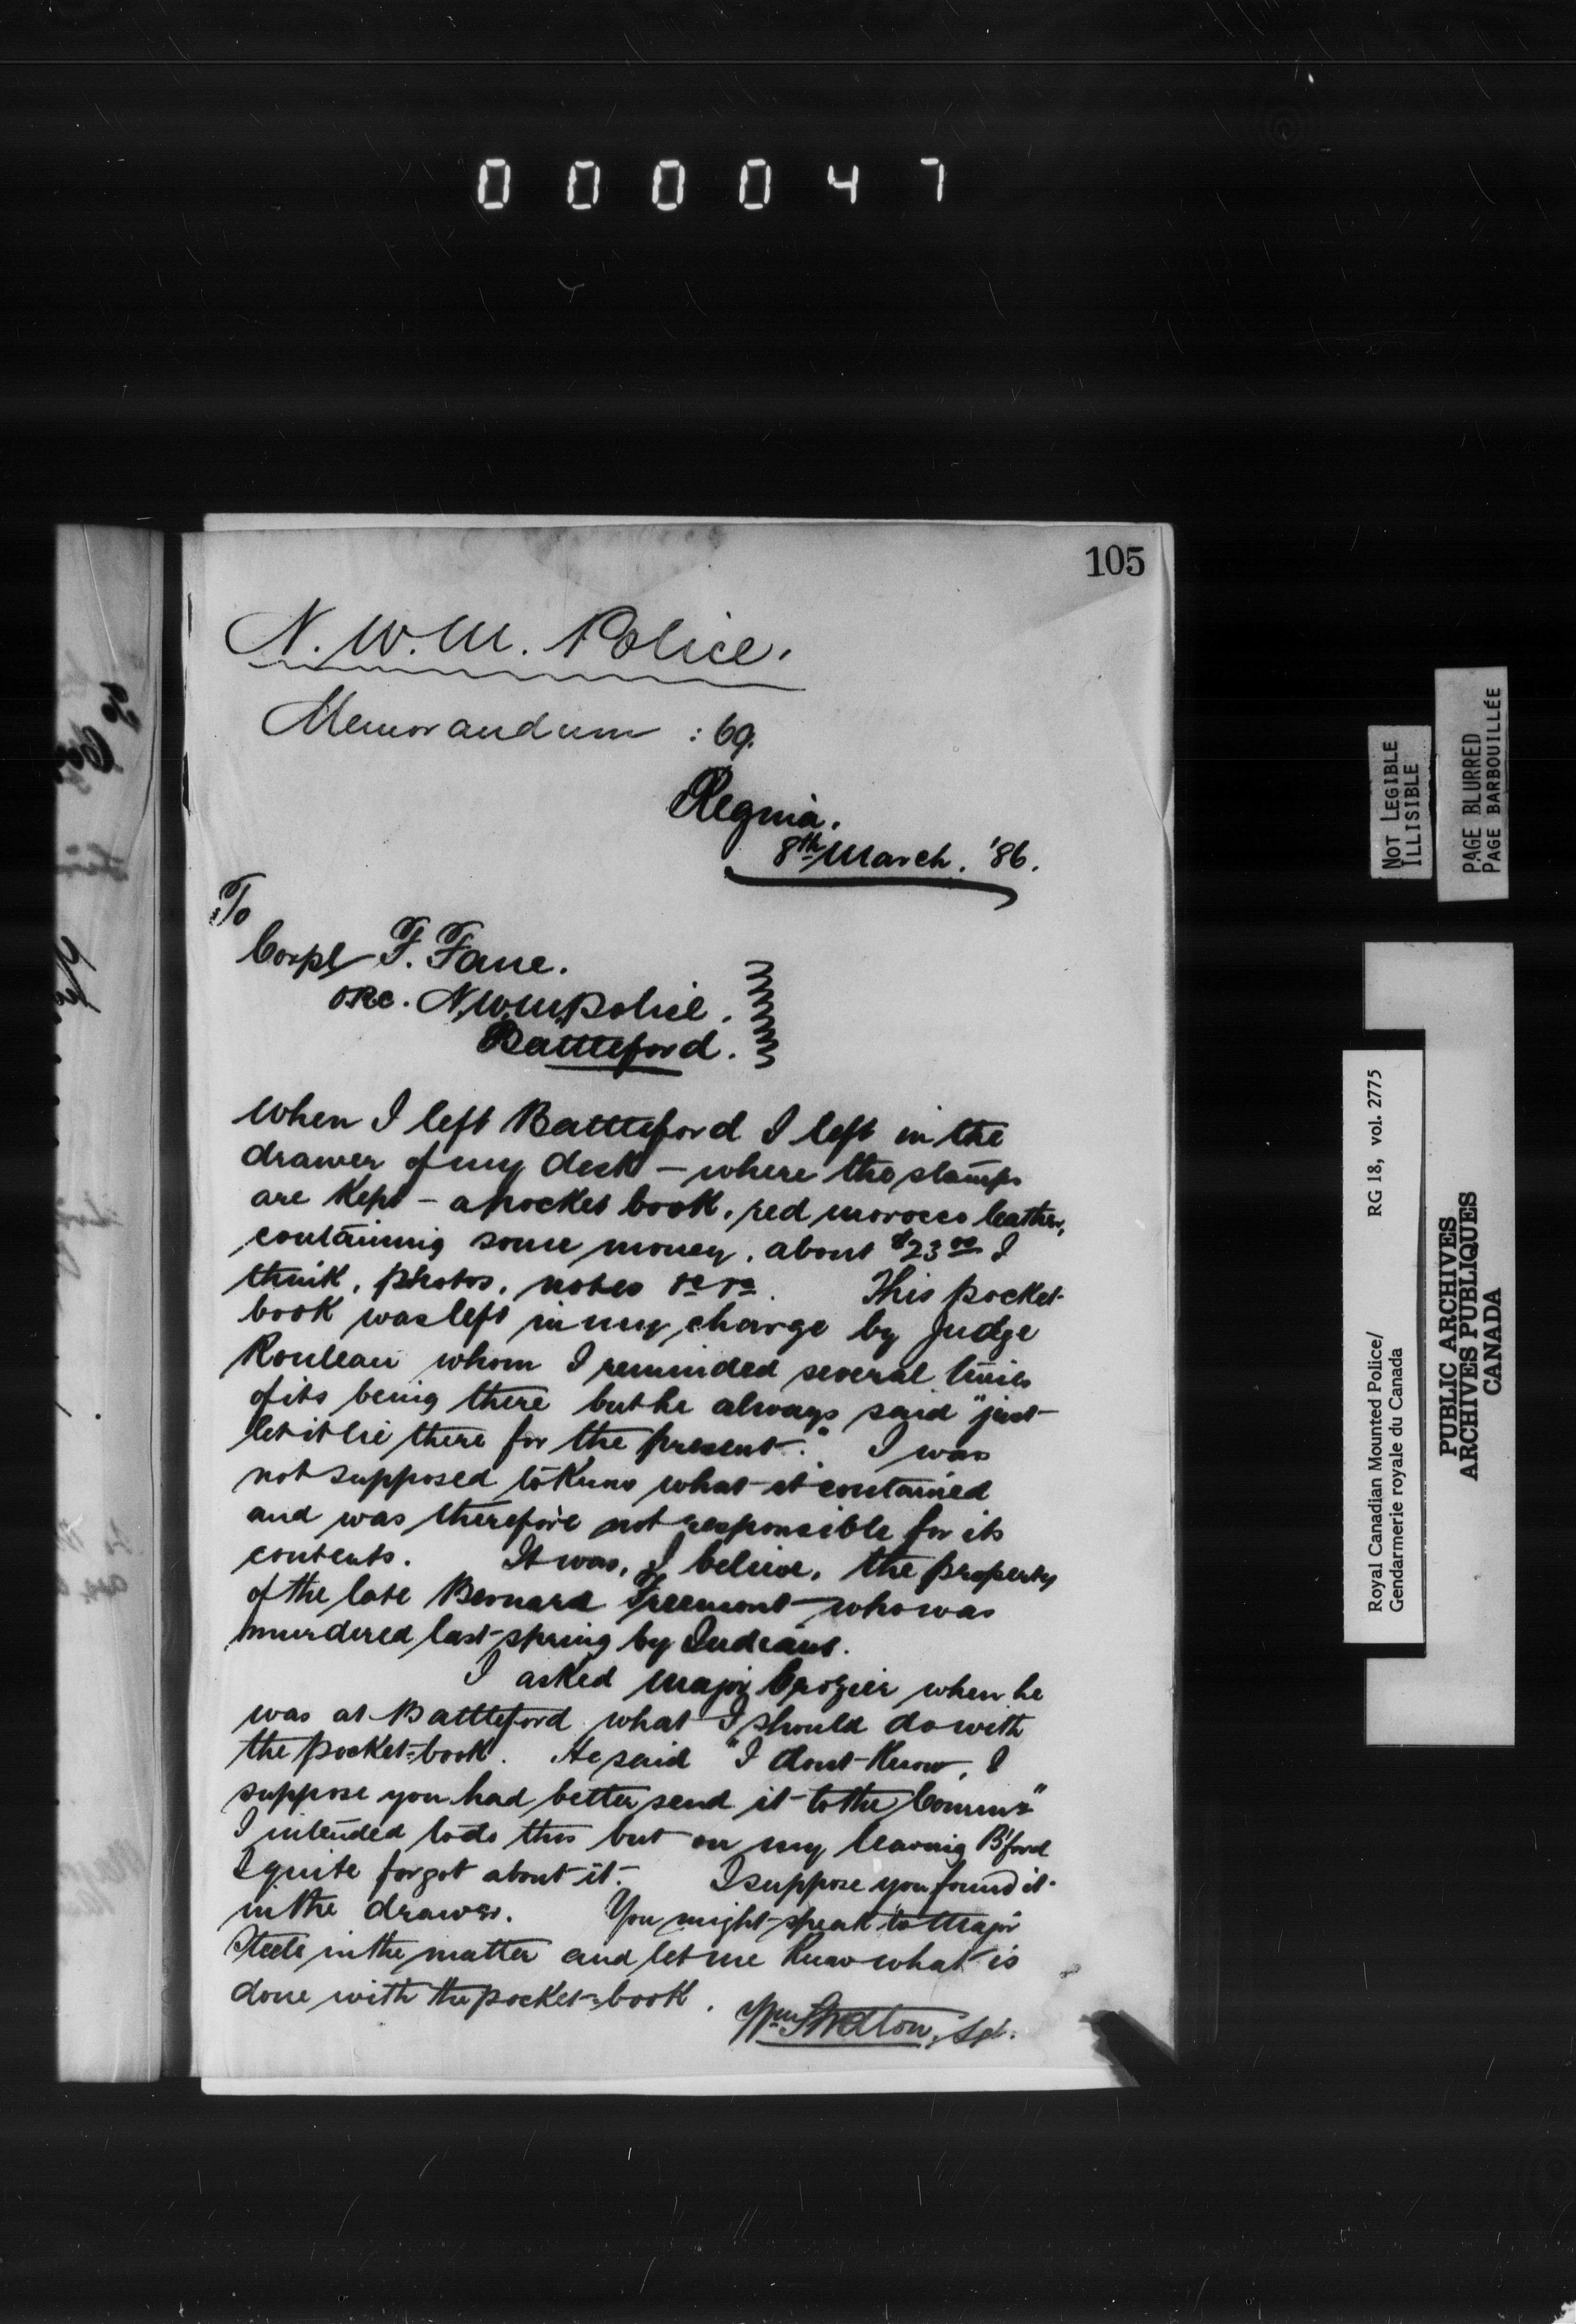 000047
105
N. W. M. Police.
Memorandum : 69.
Regina.
8th March. '86.
To
Corpl F. Fane.
ORC. N.W.M. Police.
Battleford.
When I left Battleford I left in the
drawer of my desk – where the stamps
are kept – a pocket book, red morocco leather,
containing some money, about $23.00 I
think, photos, notes &c &c. This pocket-
book was left in my charge by Judge
Rouleau whom I reminded several times
of its being there but he always said "just
let it lie there for the present." I was
not supposed to know what it contained
and was therefore not responsible for its
contents. It was, I believe, the property
of the late Bernard Freemont who was
murdered last spring by Indians.
I asked Major Crozier when he
was at Battleford what I should do with
the pocket-book. He said "I dont know, I
suppose you had better send it to the Commr"
I intended to do this but on my leaving B'ford
I quite forgot about it. I suppose you found it
in the drawer. You might speak to Major
Steele in the matter and let me know what is
done with the pocket-book.
Wm Stretton, Sgt.
NOT LEGIBLE
ILLISIBLE
PAGE BLURRED
PAGE BARBOUILLÉE
Royal Canadian Mounted Police/ RG 18, vol. 2775
Gendarmerie royale du Canada
PUBLIC ARCHIVES
ARCHIVES PUBLIQUES
CANADA